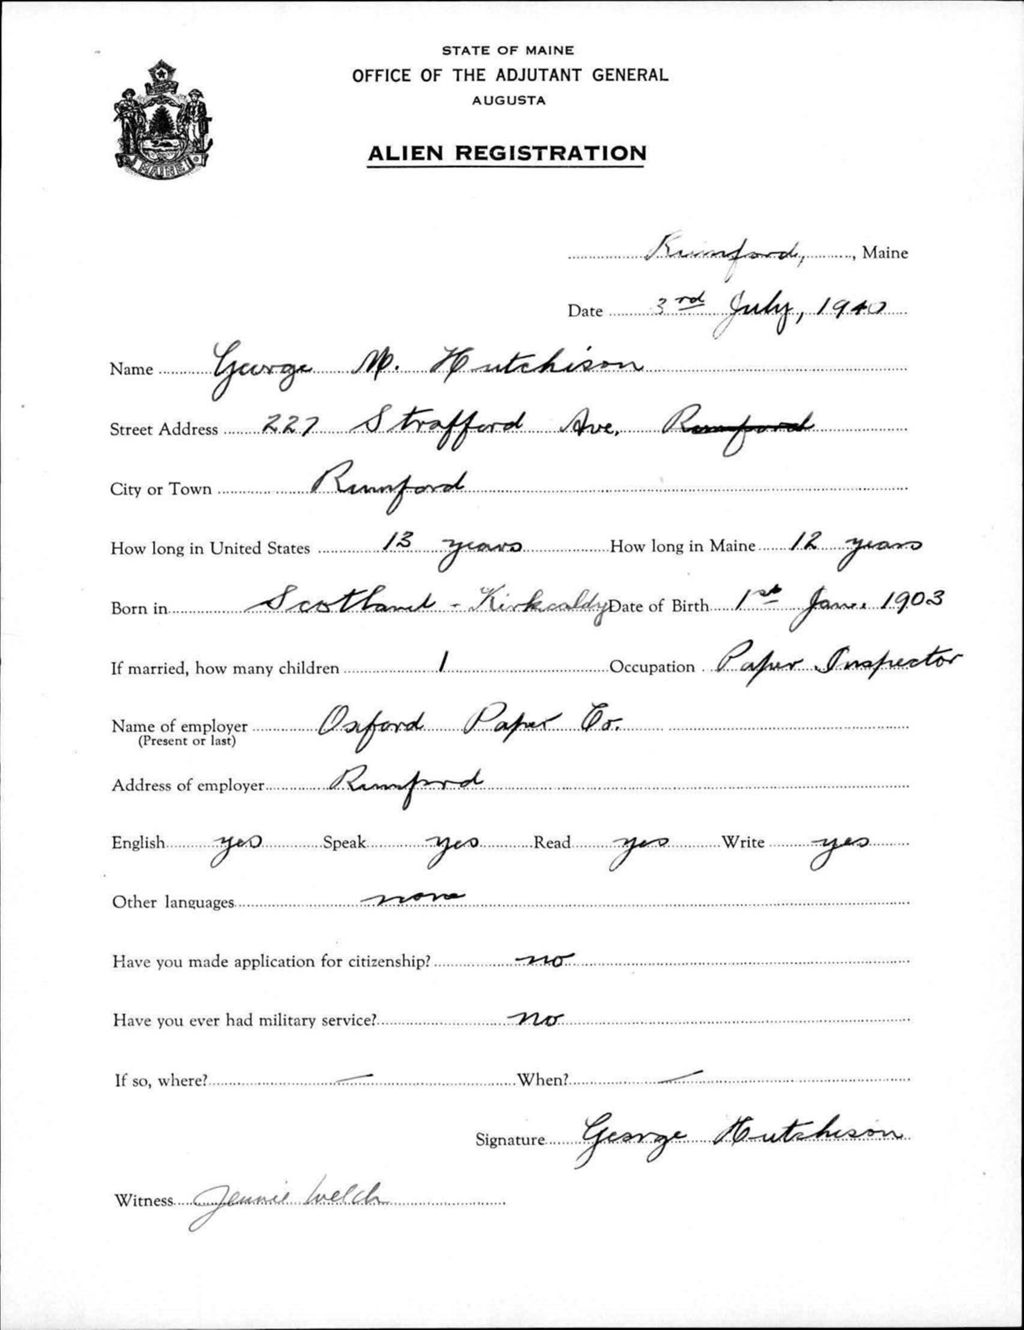 STATE OF MAINE
OFFICE OF THE ADJUTANT GENERAL
AUGUSTA
ALIEN REGISTRATION
MAINE
Rumford, , Maine
Date 3rd July, 1940
Name George M. Hutchison
Street Address 227 Strafford Ave. Rumford
City or Town Rumford
How long in United States 13 years How long in Maine 12 years
Born in Scotland - Kirkcaldy Date of Birth 1st Jan. 1903
If married, how many children 1 Occupation Paper Inspector
Name of employer Oxford Paper Co.
(Present or last)
Address of employer Rumford
English yes Speak yes Read yes Write yes
Other languages none
Have you made application for citizenship? no
Have you ever had military service? no
If so, where? — When? —
Signature George Hutchison
Witness Jennie Welch